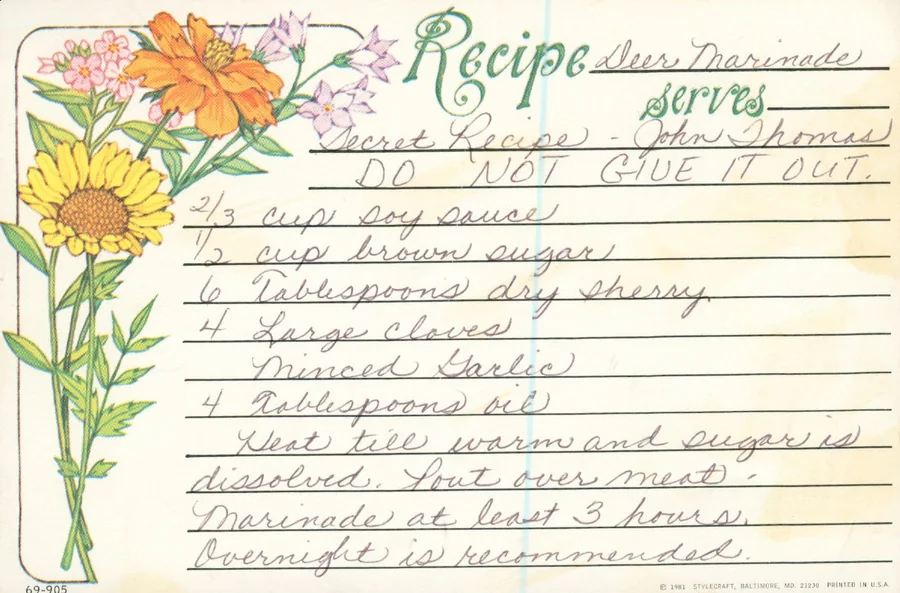 Recipe Deer Marinade
serves
Secret Recipe - John Thomas
DO NOT GIVE IT OUT.
2/3 cup soy sauce
1/2 cup brown sugar
6 Tablespoons dry sherry
4 Large cloves
Minced Garlic
4 Tablespoons oil
Heat till warm and sugar is
dissolved. Pour over meat.
Marinade at least 3 hours.
Overnight is recommended.
69-905
© 1981 STYLECRAFT, BALTIMORE, MD. 21230 PRINTED IN U.S.A.